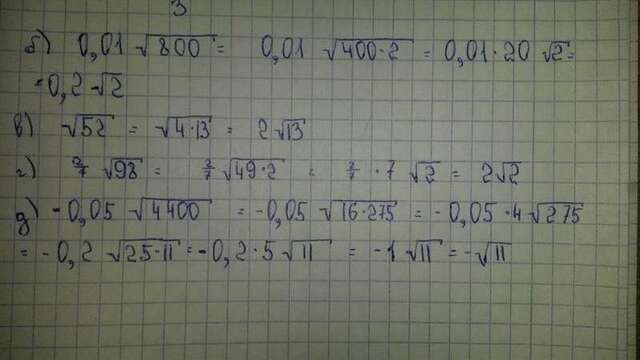 3
б) 0,01 √800 = 0,01 √400·2 = 0,01·20 √2 =
=0,2 √2
в) √52 = √4·13 = 2√13
г) 2/7 √98 = 2/7 √49·2 = 2/7 · 7 √2 = 2√2
д) -0,05 √4400 = -0,05 √16·275 = -0,05·4√275
= -0,2 √25·11 = -0,2·5√11 = -1√11 = -√11